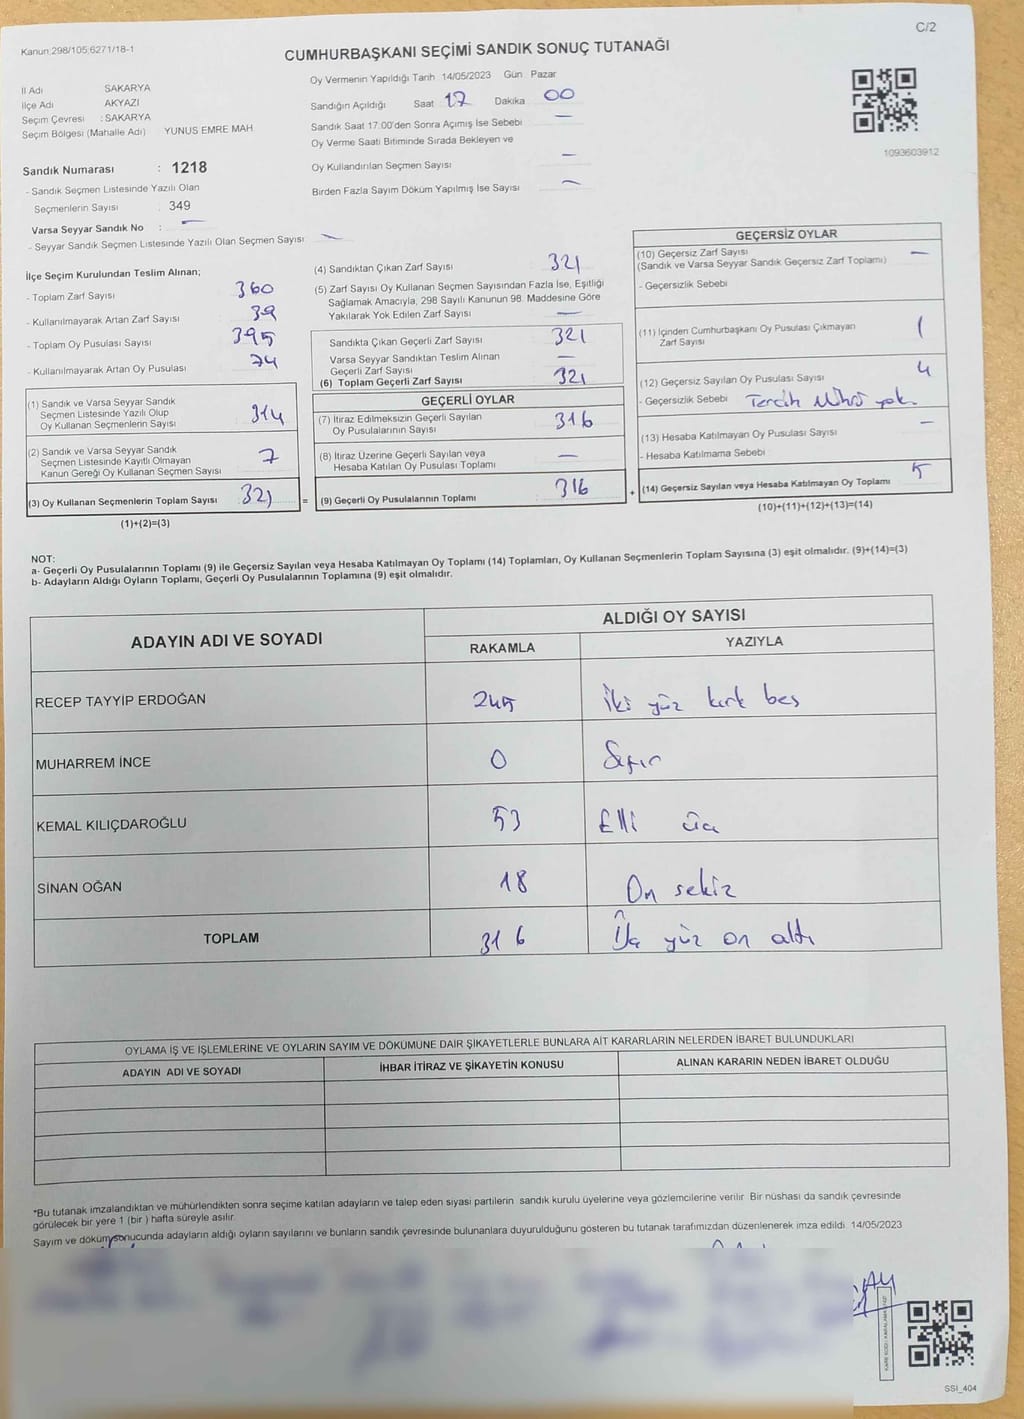 C/2
Kanun:298/105;6271/18-1
CUMHURBAŞKANI SEÇİMİ SANDIK SONUÇ TUTANAĞI
İl Adı SAKARYA
İlçe Adı AKYAZI
Seçim Çevresi : SAKARYA
Seçim Bölgesi (Mahalle Adı) YUNUS EMRE MAH
Oy Vermenin Yapıldığı Tarih 14/05/2023 Gün Pazar
Sandığın Açıldığı Saat 17 Dakika 00
Sandık Saat 17.00'den Sonra Açımış İse Sebebi —
Oy Verme Saati Bitiminde Sırada Bekleyen ve
Oy Kullandırılan Seçmen Sayısı —
Birden Fazla Sayım Döküm Yapılmış İse Sayısı —
1093603912
Sandık Numarası : 1218
- Sandık Seçmen Listesinde Yazılı Olan
Seçmenlerin Sayısı 349
Varsa Seyyar Sandık No : —
- Seyyar Sandık Seçmen Listesinde Yazılı Olan Seçmen Sayısı —
İlçe Seçim Kurulundan Teslim Alınan;
- Toplam Zarf Sayısı 360
- Kullanılmayarak Artan Zarf Sayısı 39
- Toplam Oy Pusulası Sayısı 395
- Kullanılmayarak Artan Oy Pusulası 74
(1) Sandık ve Varsa Seyyar Sandık
Seçmen Listesinde Yazılı Olup
Oy Kullanan Seçmenlerin Sayısı 314
(2) Sandık ve Varsa Seyyar Sandık
Seçmen Listesinde Kayıtlı Olmayan
Kanun Gereği Oy Kullanan Seçmen Sayısı 7
(3) Oy Kullanan Seçmenlerin Toplam Sayısı 321 =
(1)+(2)=(3)
(4) Sandıktan Çıkan Zarf Sayısı 321
(5) Zarf Sayısı Oy Kullanan Seçmen Sayısından Fazla İse, Eşitliği
Sağlamak Amacıyla, 298 Sayılı Kanunun 98. Maddesine Göre
Yakılarak Yok Edilen Zarf Sayısı —
Sandıkta Çıkan Geçerli Zarf Sayısı 321
Varsa Seyyar Sandıktan Teslim Alınan
Geçerli Zarf Sayısı —
(6) Toplam Geçerli Zarf Sayısı 321
GEÇERLİ OYLAR
(7) İtiraz Edilmeksizin Geçerli Sayılan
Oy Pusulalarının Sayısı 316
(8) İtiraz Üzerine Geçerli Sayılan veya
Hesaba Katılan Oy Pusulası Toplamı —
(9) Geçerli Oy Pusulalarının Toplamı 316 +
GEÇERSİZ OYLAR
(10) Geçersiz Zarf Sayısı —
(Sandık ve Varsa Seyyar Sandık Geçersiz Zarf Toplamı)
- Geçersizlik Sebebi
(11) İçinden Cumhurbaşkanı Oy Pusulası Çıkmayan
Zarf Sayısı 1
(12) Geçersiz Sayılan Oy Pusulası Sayısı 4
- Geçersizlik Sebebi Tercih Mührü yok.
(13) Hesaba Katılmayan Oy Pusulası Sayısı —
- Hesaba Katılmama Sebebi
(14) Geçersiz Sayılan veya Hesaba Katılmayan Oy Toplamı 5
(10)+(11)+(12)+(13)=(14)
NOT:
a- Geçerli Oy Pusulalarının Toplamı (9) ile Geçersiz Sayılan veya Hesaba Katılmayan Oy Toplamı (14) Toplamları, Oy Kullanan Seçmenlerin Toplam Sayısına (3) eşit olmalıdır. (9)+(14)=(3)
b- Adayların Aldığı Oyların Toplamı, Geçerli Oy Pusulalarının Toplamına (9) eşit olmalıdır.
ADAYIN ADI VE SOYADI ALDIĞI OY SAYISI
RAKAMLA YAZIYLA
RECEP TAYYİP ERDOĞAN 245 İki yüz kırk beş
MUHARREM İNCE 0 Sıfır
KEMAL KILIÇDAROĞLU 53 Elli üç
SİNAN OĞAN 18 On sekiz
TOPLAM 316 Üç yüz on altı
OYLAMA İŞ VE İŞLEMLERİNE VE OYLARIN SAYIM VE DÖKÜMÜNE DAİR ŞİKAYETLERLE BUNLARA AİT KARARLARIN NELERDEN İBARET BULUNDUKLARI
ADAYIN ADI VE SOYADI İHBAR İTİRAZ VE ŞİKAYETİN KONUSU ALINAN KARARIN NEDEN İBARET OLDUĞU
*Bu tutanak imzalandıktan ve mühürlendikten sonra seçime katılan adayların ve talep eden siyasi partilerin sandık kurulu üyelerine veya gözlemcilerine verilir Bir nüshası da sandık çevresinde
görülecek bir yere 1 (bir ) hafta süreyle asılır.
Sayım ve döküm sonucunda adayların aldığı oyların sayılarını ve bunların sandık çevresinde bulunanlara duyurulduğunu gösteren bu tutanak tarafımızdan düzenlenerek imza edildi. 14/05/2023
SSI_404